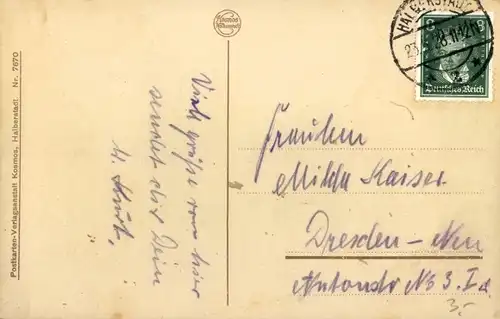 Postkarten-Verlagsanstalt Kosmos, Halberstadt Nr. 7670
Kosmos
HALBERSTADT
8
Deutsches Reich
Viele Grüße von
sendet dir Dein
Kurt.
Fräulein
Milda Kaiser
Dresden-Neu
No 3. I